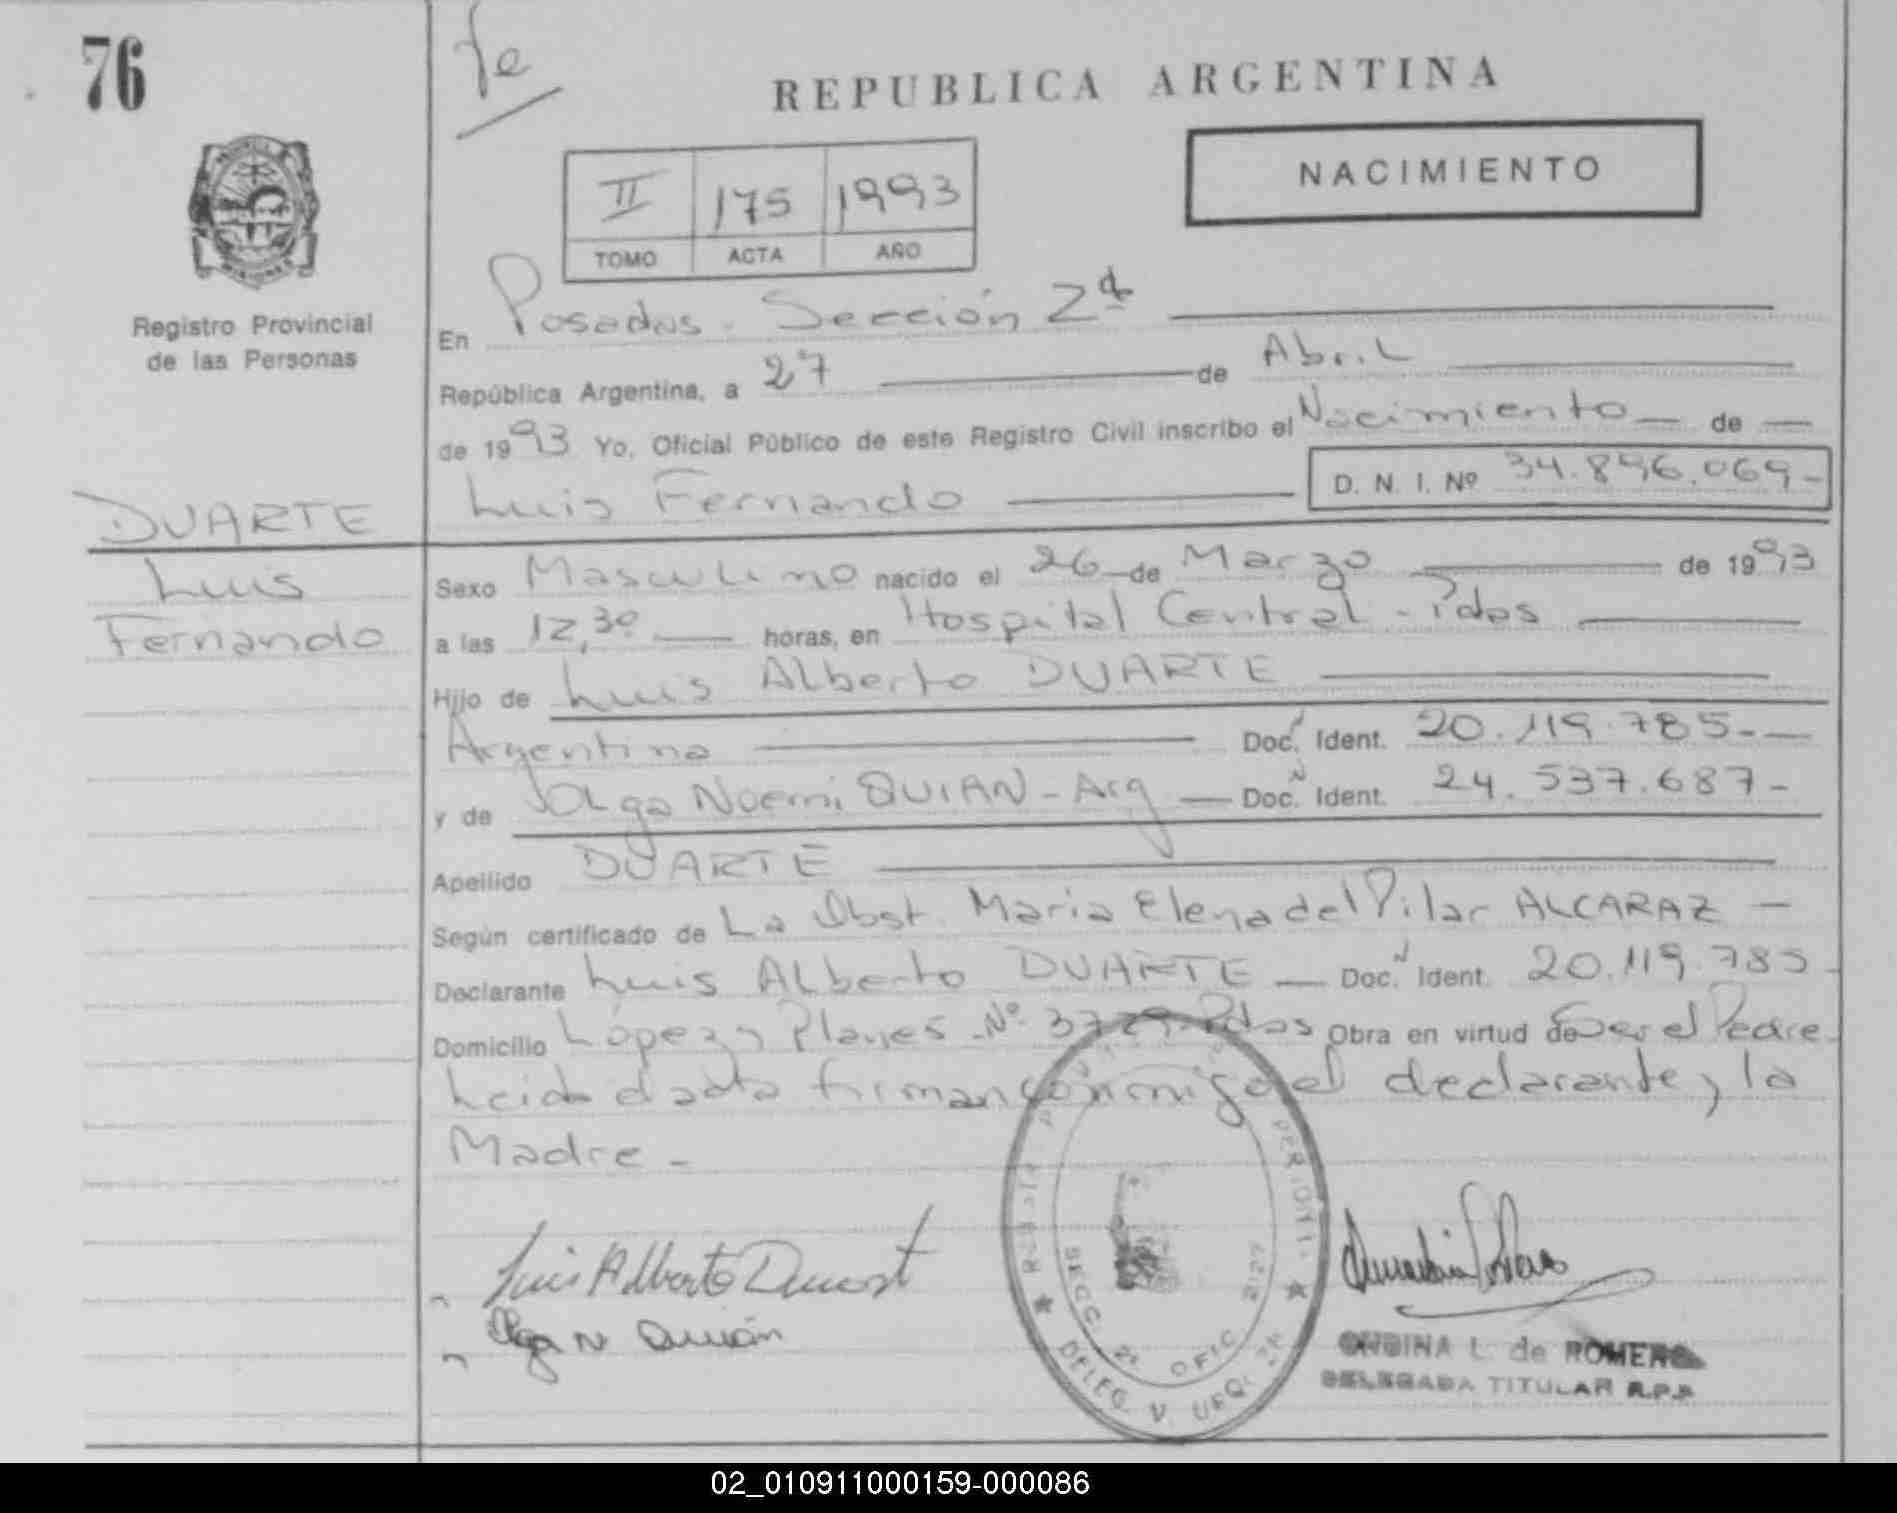 76
fe
REPUBLICA ARGENTINA
NACIMIENTO
II 175 1993
TOMO ACTA AÑO
Registro Provincial
de las Personas
En Posadas - Sección 2ª
República Argentina, a 27 de Abril
de 1993 Yo, Oficial Público de este Registro Civil inscribo el Nacimiento de
Luis Fernando
D. N. I. Nº 34.896.069-
DUARTE
Luis
Fernando
Sexo Masculino nacido el 26 de Marzo de 1993
a las 12,30 horas, en Hospital Central - Pdas
Hijo de Luis Alberto DUARTE
Argentina Doc. Ident. 20.119.785-
y de Olga Noemi QUIAN - Arg Doc. Ident. 24.537.687-
Apellido DUARTE
Según certificado de La Obst. Maria Elena del Pilar ALCARAZ -
Declarante Luis Alberto DUARTE - Doc. Ident. 20.119.785-
Domicilio López y Planes - Nº 3729 - Pdas Obra en virtud de Ser el Padre
Leida el acta firman conmigo el declarante y la
Madre -
Luis Alberto Duart
Olga N Quián
SECC. 2ª OFIC. 2127
DELEG. V. URQUIZA
ONDINA L. de ROMERO
DELEGADA TITULAR R.P.P.
02_010911000159-000086